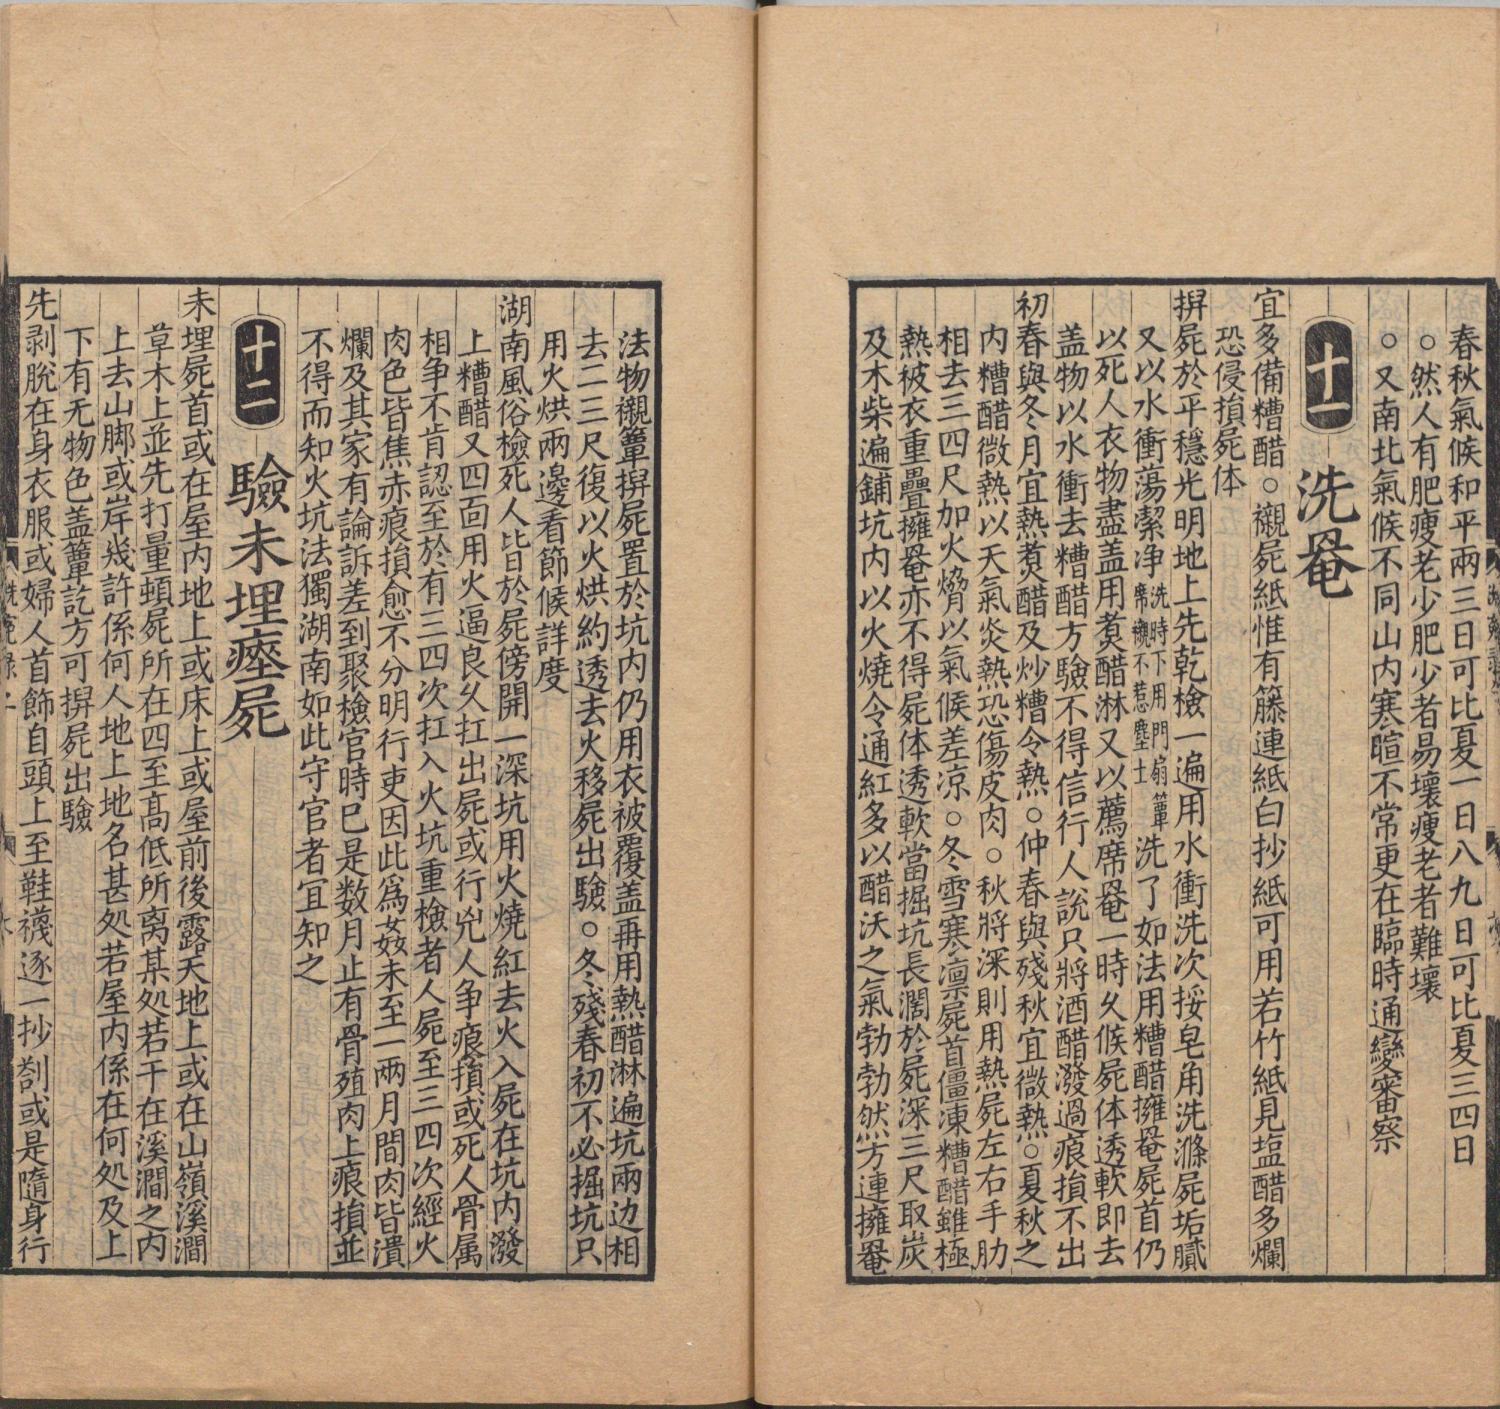 春秋氣候和平兩三日可比夏一日八九日可比夏三四日
○然人有肥瘦老少肥少者易壞瘦老者難壞
○又南北氣候不同山內寒暄不常更在臨時通變審察
十一 洗罨
宜多備糟醋○襯屍紙惟有籐連紙白抄紙可用若竹紙見塩醋多爛
恐侵損屍体
擡屍於平穩光明地上先乾檢一遍用水衝洗次挼皂角洗滌屍垢膩
又以水衝蕩潔净洗時下用門扇簟席襯不惹塵土洗了如法用糟醋擁罨屍首仍
以死人衣物盡盖用煑醋淋又以薦席罨一時久候屍体透軟即去
盖物以水衝去糟醋方驗不得信行人說只將酒醋潑過痕損不出
初春與冬月宜熱煑醋及炒糟令熱○仲春與殘秋宜微熱○夏秋之
內糟醋微熱以天氣炎熱恐傷皮肉○秋將深則用熱屍左右手肋
相去三四尺加火熁以氣候差涼○冬雪寒凛屍首僵凍糟醋雖極
熱被衣重疊擁罨亦不得屍体透軟當掘坑長濶於屍深三尺取炭
及木柴遍鋪坑內以火燒令通紅多以醋沃之氣勃勃然方連擁罨
法物襯簟擡屍置於坑內仍用衣被覆盖再用熱醋淋遍坑兩边相
去二三尺復以火烘約透去火移屍出驗○冬殘春初不必掘坑只
用火烘兩邊看節候詳度
湖南風俗檢死人皆於屍傍開一深坑用火燒紅去火入屍在坑內潑
上糟醋又四靣用火逼良久扛出屍或行兇人争痕損或死人骨属
相争不肯認至於有三四次扛入火坑重檢者人屍至三四次經火
肉色皆焦赤痕損愈不分明行吏因此爲姦未至一兩月間肉皆潰
爛及其家有論訴差到聚檢官時已是数月止有骨殖肉上痕損並
不得而知火坑法獨湖南如此守官者宜知之
十二 驗未埋瘞屍
未埋屍首或在屋內地上或床上或屋前後露天地上或在山嶺溪澗
草木上並先打量頓屍所在四至高低所离某処若干在溪澗之內
上去山脚或岸幾許係何人地上地名甚処若屋內係在何処及上
下有无物色盖簟訖方可擡屍出驗
先剥脫在身衣服或婦人首飾自頭上至鞋襪逐一抄劄或是隨身行